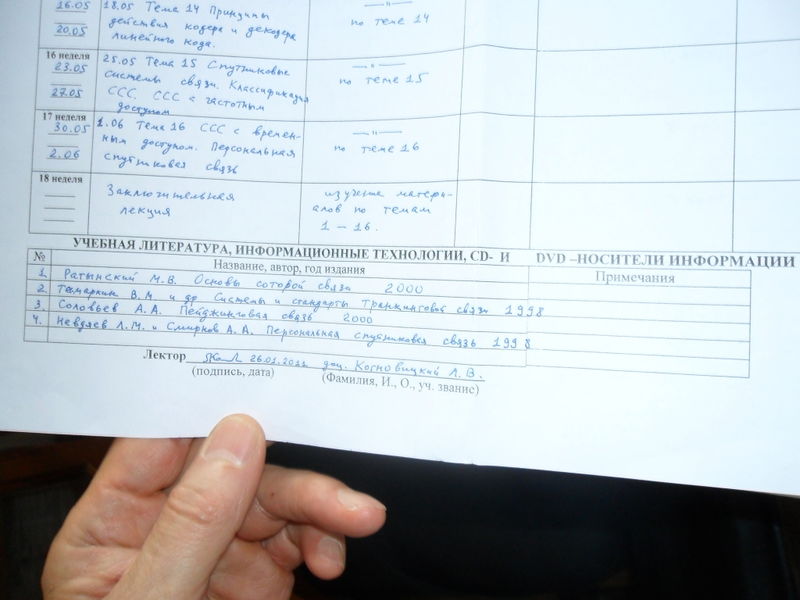 16.05
18.05 Тема 14 Принципы
действия кодера и декодера
20.05
линейного кода.
— " —
по теме 14
16 неделя
23.05
27.05
25.05 Тема 15 Спутниковые
системы связи. Классификация
ССС. ССС с частотным
доступом
— " —
по теме 15
17 неделя
30.05
2.06
1.06 Тема 16 ССС с времен-
ным доступом. Персональная
спутниковая связь
— " —
по теме 16
18 неделя
Заключительная
лекция
изучение матери-
алов по темам
1 – 16.
УЧЕБНАЯ ЛИТЕРАТУРА, ИНФОРМАЦИОННЫЕ ТЕХНОЛОГИИ, CD- И DVD –НОСИТЕЛИ ИНФОРМАЦИИ
№ Название, автор, год издания Примечания
1. Ратынский М.В. Основы сотовой связи 2000
2. Тамаркин В.М. и др Системы и стандарты транкинговой связи 1998
3. Соловьев А.А. Пейджинговая связь 2000
4. Невдяев Л.М. и Смирнов А.А. Персональная спутниковая связь 1998
Лектор 26.01.2011 доц. Когновицкий Л.В.
(подпись, дата) (Фамилия, И., О., уч. звание)